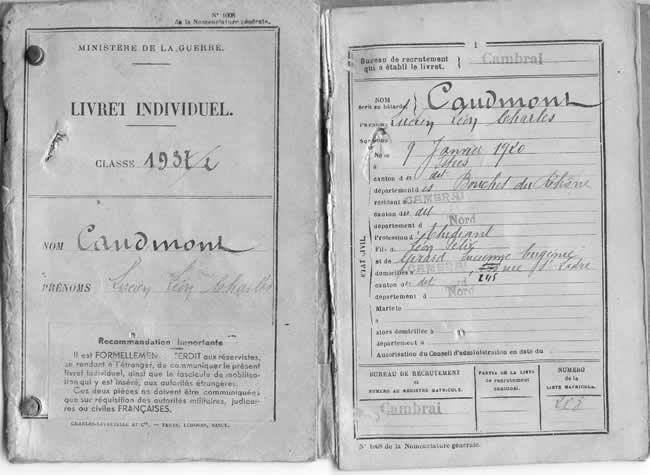 N° 1008
de la Nomenclature générale.
MINISTÈRE DE LA GUERRE.
LIVRET INDIVIDUEL.
CLASSE 1937/2
NOM Caudmont
PRÉNOMS Lucien Léon Charles
Recommandation importante
Il est FORMELLEMEN ERDIT aux réservistes,
se rendant à l'étranger, de communiquer le présent
livret individuel, ainsi que le fascicule de mobilisa-
tion qui y est inséré, aux autorités étrangères.
Ces deux pièces ne doivent être communiquées
que sur réquisition des autorités militaires, judicai-
res ou civiles FRANÇAISES.
CHARLES-LAVAUZELLE ET Cie. — PARIS, LIMOGES, NANCY.
1
Bureau de recrutement
qui a établi le livret.
Cambrai
NOM
écrit en bâtarde
Caudmont
PRÉNOMS Lucien Léon Charles
Surnoms
Né le 9 Janvier 1920
canton d dit
département des Bouches du Rhône
résidant à CAMBRAI
canton d dit
département d Nord
Profession d'Etudiant
Fils de Léon Félix
et de Gérard Lucienne Eugénie
domiciliés à CAMBRAI rue St
canton d dit 245
département d Nord
Marié le
à
alors domiciliée à
département
Autorisation du Conseil d'administration en date du
ÉTAT CIVIL
BUREAU DE RECRUTEMENT
et
NUMÉRO AU REGISTRE MATRICULE.
Cambrai
PARTIE DE LA LISTE
de recrutement
cantonal.
NUMÉRO
de la
LISTE MATRICULE.
N° 1008 de la Nomenclature générale.